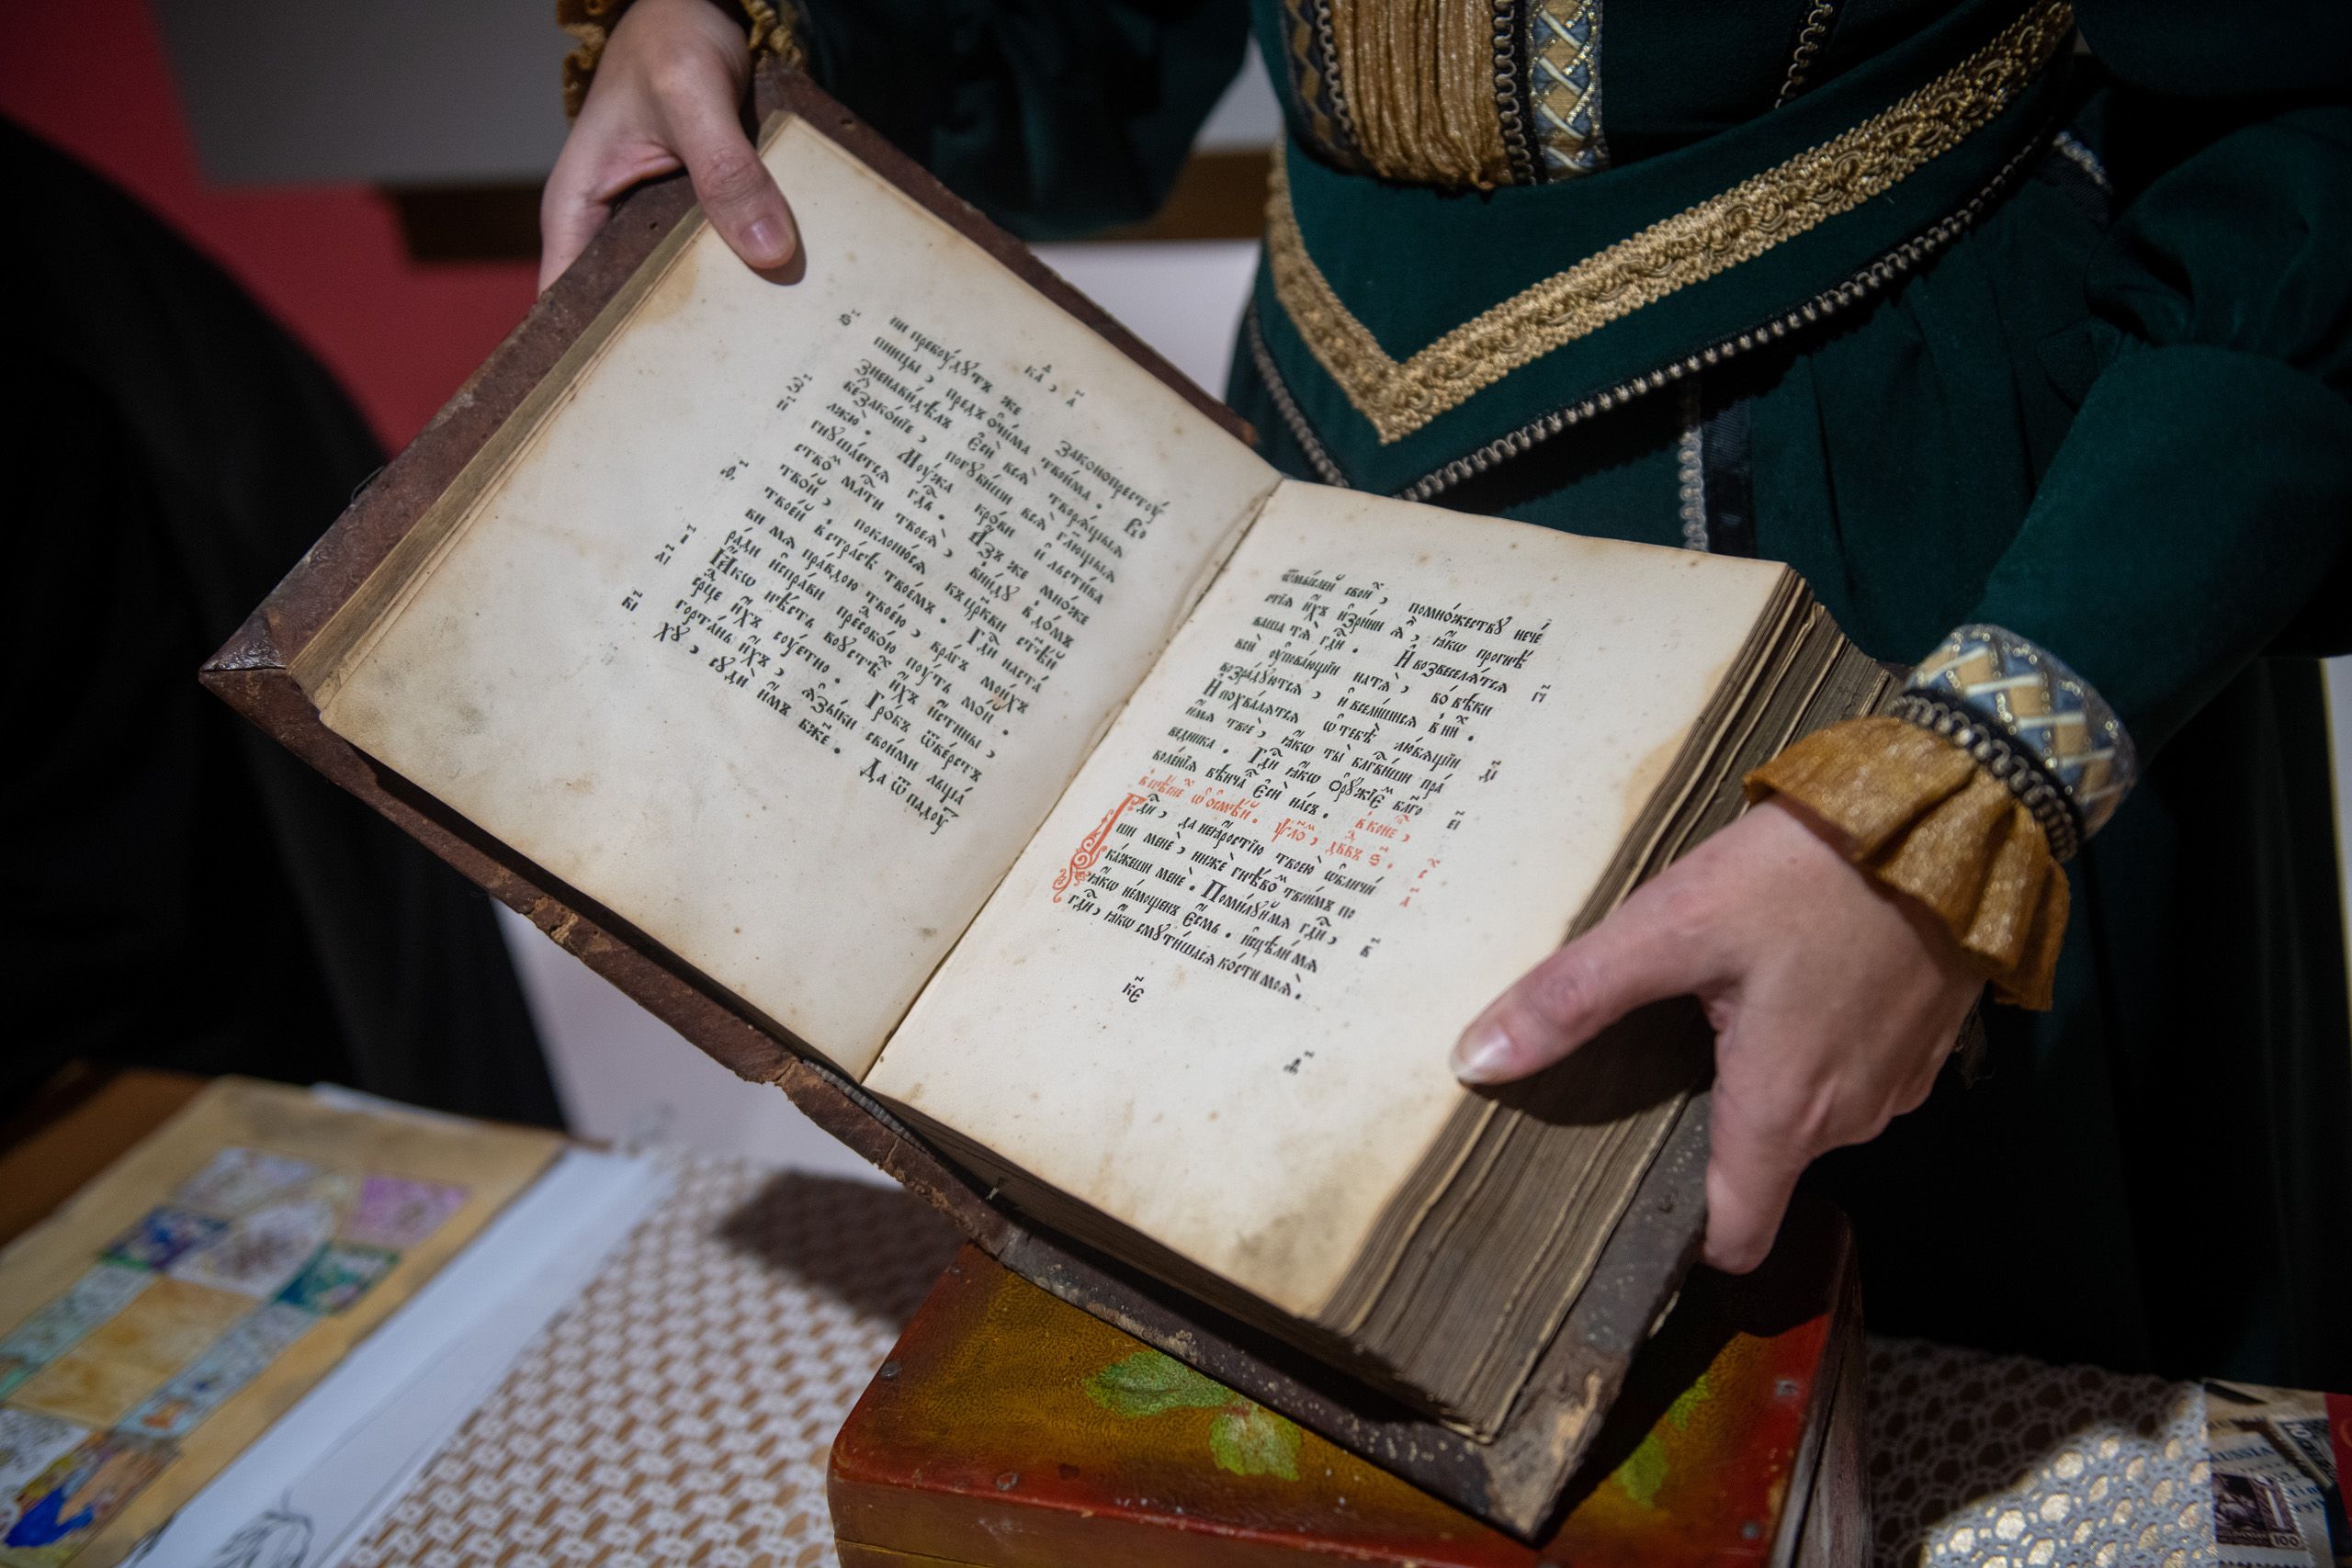 ка̑ , а҃
ни пребꙋ́дꙋтъ же законопрестꙋ́
пницы , предъ ѻ҆чи́ма твои́ма . Во
зненави́дѣхъ є҆сѝ всѧ̀ творѧ́щыѧ
беззако́нїе , погꙋби́ши всѧ̀ гл҃ющыѧ
лжю̀ . Мꙋ́жа кро́ви и҆ льсти́ва
гнꙋша́етсѧ гдⷭ҇ь . И҆зъ же мно́же
ствоⷨ млⷭ҇ти твоеѧ̀ , вни́дꙋ в до́мъ
тво́й , поклоню́сѧ къ цр҃кви ст҃ѣй
твое́й в стра́сѣ твое́мъ . Гдⷭ҇и наста́
ви мѧ пра́вдою твое́ю , вра́гъ мои́хъ
ра́ди и҆спра́ви предⸯ собо́ю пꙋ́ть мо́й .
Ꙗ҆́кѡ нѣ́сть во ᲂу҆стѣⷯ и҆́хъ и҆́стинны ,
срⷣце и҆́хъ сꙋ́етно . Гро́бъ ѿве́рстъ
горта́нь и҆́хъ , ѧ҆зы́ки свои́ми льща́
хꙋ , сꙋдѝ и҆̀мъ бж҃е . Да ѿпадꙋ́
ѿмы́слей свои́ⷯ , по мно́жествꙋ нече́
стїѧ и҆́хъ и҆зри́ни ѧ҆̀ , ꙗ҆́кѡ прогнѣ́
ваша тѧ̀ гдⷭ҇и . И҆ возвеселѧ́тсѧ
всѝ ᲂу҆пова́ющїи на тѧ̀ , во вѣ́ки
возра́дꙋютсѧ , и҆ всели́шисѧ в ни́ⷯ .
И҆ похва́лѧтсѧ ѡ҆ тебѣ̀ лю́бѧщїи
и҆́мѧ твоѐ , ꙗ҆́кѡ ты̀ блгⷭ҇ви́ши пра́
ведника . Гдⷭ҇и ꙗ҆́кѡ ѻ҆рꙋ́жїеⷨ блг҃о
воле́нїѧ вѣнча́ⷧ є҆сѝ на́съ . в коне́ⷰ ,
в пѣ́снеⷯ ѡ҆ о҆смѣ́й . ѱло́ⷨ , дв҃дъ ѕ҃ .
Гдⷭ҇и , да не ꙗ҆́ростїю твое́ю ѡ҆бличи́
ши менѐ , нижѐ гнѣ́воⷨ твои́мъ по
ка́жеши менѐ . Поми́лꙋй мѧ гдⷭ҇и ,
ꙗ҆́кѡ не́мощенъ є҆́смь . и҆сцѣли́ мѧ
гдⷭ҇и , ꙗ҆́кѡ смꙋти́шасѧ ко́сти моѧ̀ .
к҃є
д҃